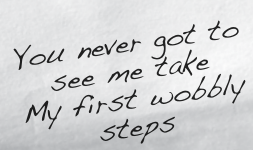 You never got to
see me take
My first wobbly
steps